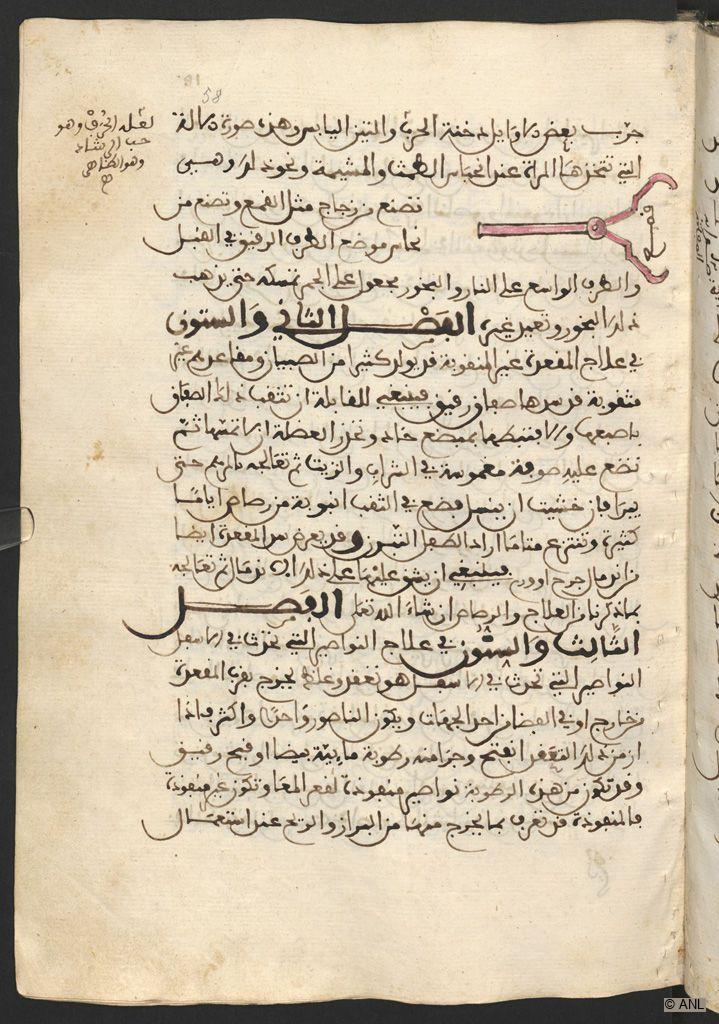 58
جرب بعض الاوايل دخنة الحرف والتين اليابس وهذه صورة الالة
التي تتخذها المراة عند احتباس الطمث والمشيمة ونحو ذلك وهي
تصنع من زجاج مثل القمع وتصنع من
نحاس موضع الطرف الرقيق في القبل
والطرف الواسع على النار والبخور مجعول على الجمر تمسكه حتى يذهب
ذلك البخور وتعيد غيره الفصل الثاني والستون
في علاج المقعدة غير المثقوبة قد يولد كثير من الصبيان ومقاعدهم غير
مثقوبة قد سدها صفاق رقيق فينبغي للقابلة ان تثقب ذلك الصفاق
باصبعها والا فتبطها بمبضع حاد وتحذر العضلة ان لا تمسها ثم
تضع عليه صوفة مغموسة في الشراب والزيت ثم تعالجه بالمرهم حتى
يبرا فان خشيت ان ينسد فضع في الثقب انبوبة من رصاص اياما
كثيرة وتنتزع متاما اراد الطفل التبرز وقد يعرض سد المقعدة ايضا
من اندمال جرح او ورم فينبغي ان يشق ذلك الاندمال ثم تعالجه
بما ذكرنا من العلاج والرصاص ان شاء الله تعلى الفصل
الثالث والستون في علاج النواصير التي تحدث في الاسفل
النواصير التي تحدث في الاسفل هو تعقد وغلظ يخرج بقرب المقعدة
من خارج او في الفضا من احد الجهات ويكون الناصور واحدا واكثر فاذا
ازمن ذلك التعقد انفتح وجرا منه رطوبة مايية بيضا او قيح رقيق
وقد تكون من هذه الرطوبة نواصير منفوذة لقعر المعا وتكون غير منفوذة
فالمنفوذة قد تعرف بما يخرج منها من البراز والريح عند استعمال
لعله الحرف وهو
حب الرشاد
© ANL